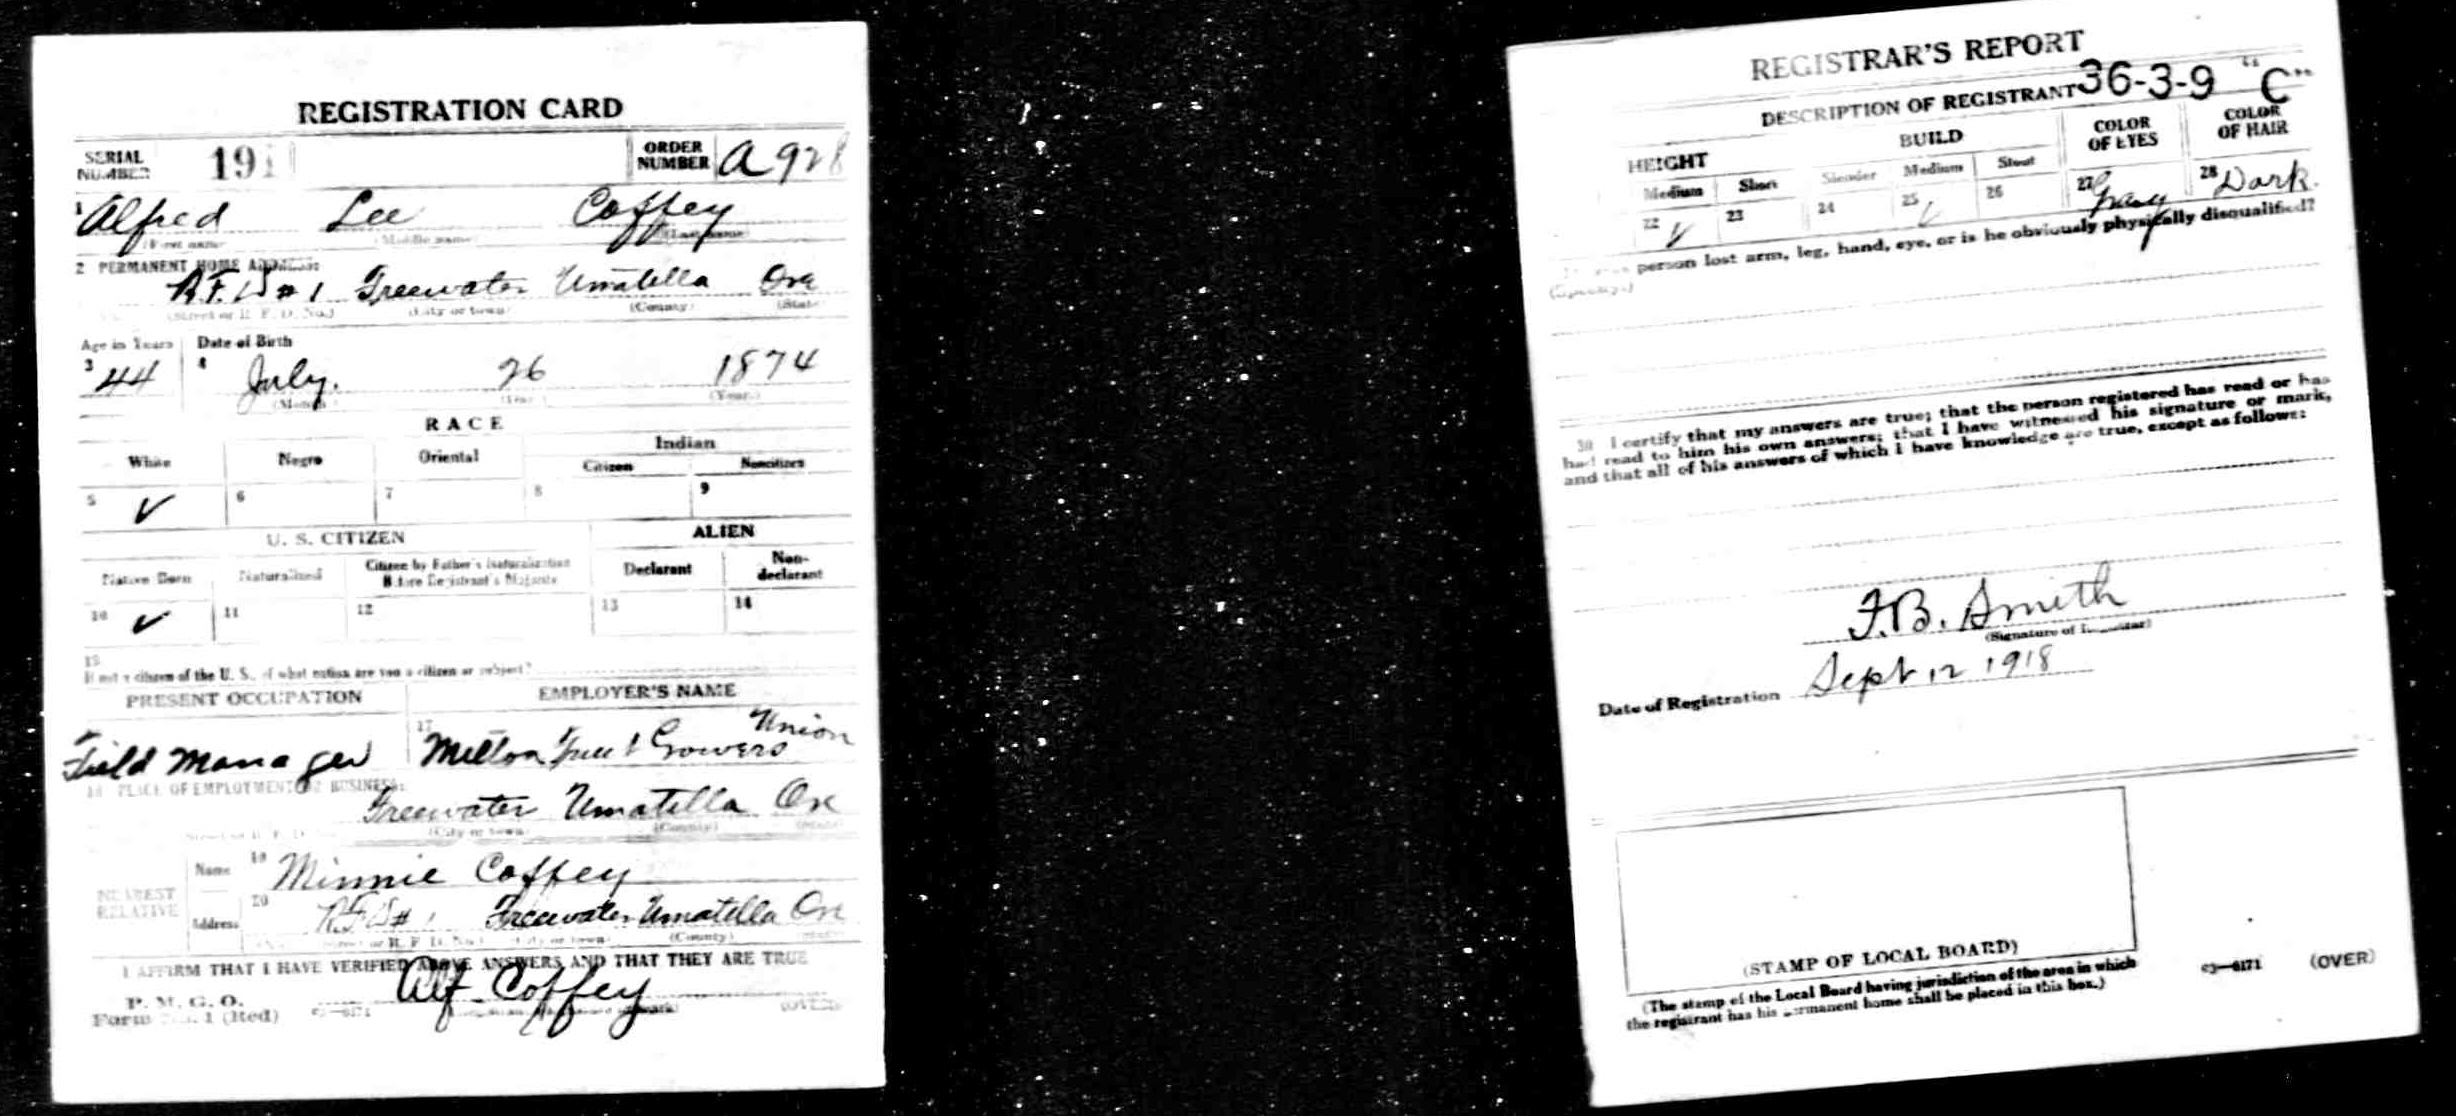 REGISTRATION CARD
SERIAL NUMBER 191 ORDER NUMBER A 928
1 Alfred Lee Coffey
(First name) (Middle name) (Last name)
2 PERMANENT HOME ADDRESS:
R.F.D # 1 Freewater Umatella Ore
(Street or R. F. D. No.) (City or town) (County) (State)
Age in Years Date of Birth
3 44 4 July. 26 1874
(Month.) (Year.)
RACE
White Negro Oriental Indian
Citizen Noncitizen
5 ✓ 6 7 8 9
U. S. CITIZEN ALIEN
Native Born Naturalized Citizen by Father's Naturalization Before Registrant's Majority Declarant Non-declarant
10 ✓ 11 12 13 14
15
If not a citizen of the U. S., of what nation are you a citizen or subject?
PRESENT OCCUPATION EMPLOYER'S NAME
Field Manager 17 Milton Fruit Growers Union
18 PLACE OF EMPLOYMENT OR BUSINESS:
Freewater Umatella Ore
(City or town) (County) (State)
NEAREST RELATIVE
Name 19 Minnie Coffey
Address 20 R.F.D # 1 Freewater Umatella Ore
(Street or R. F. D. No.) (City or town) (County) (State)
I AFFIRM THAT I HAVE VERIFIED ABOVE ANSWERS AND THAT THEY ARE TRUE
P. M. G. O.
Form No. 1 (Red) 03—6171 Alf Coffey (OVER)
REGISTRAR'S REPORT
36-3-9 "C"
DESCRIPTION OF REGISTRANT
HEIGHT BUILD COLOR OF EYES COLOR OF HAIR
Medium Short Slender Medium Stout
22 ✓ 23 24 25 ✓ 26 27 Gray 28 Dark
person lost arm, leg, hand, eye, or is he obviously physically disqualified?
(Specify.)
30 I certify that my answers are true; that the person registered has read or has
had read to him his own answers; that I have witnessed his signature or mark,
and that all of his answers of which I have knowledge are true, except as follows:
F.B. Smith
(Signature of Registrar)
Date of Registration Sept 12 1918
(STAMP OF LOCAL BOARD)
(The stamp of the Local Board having jurisdiction of the area in which
the registrant has his permanent home shall be placed in this box.)
03—6171 (OVER)